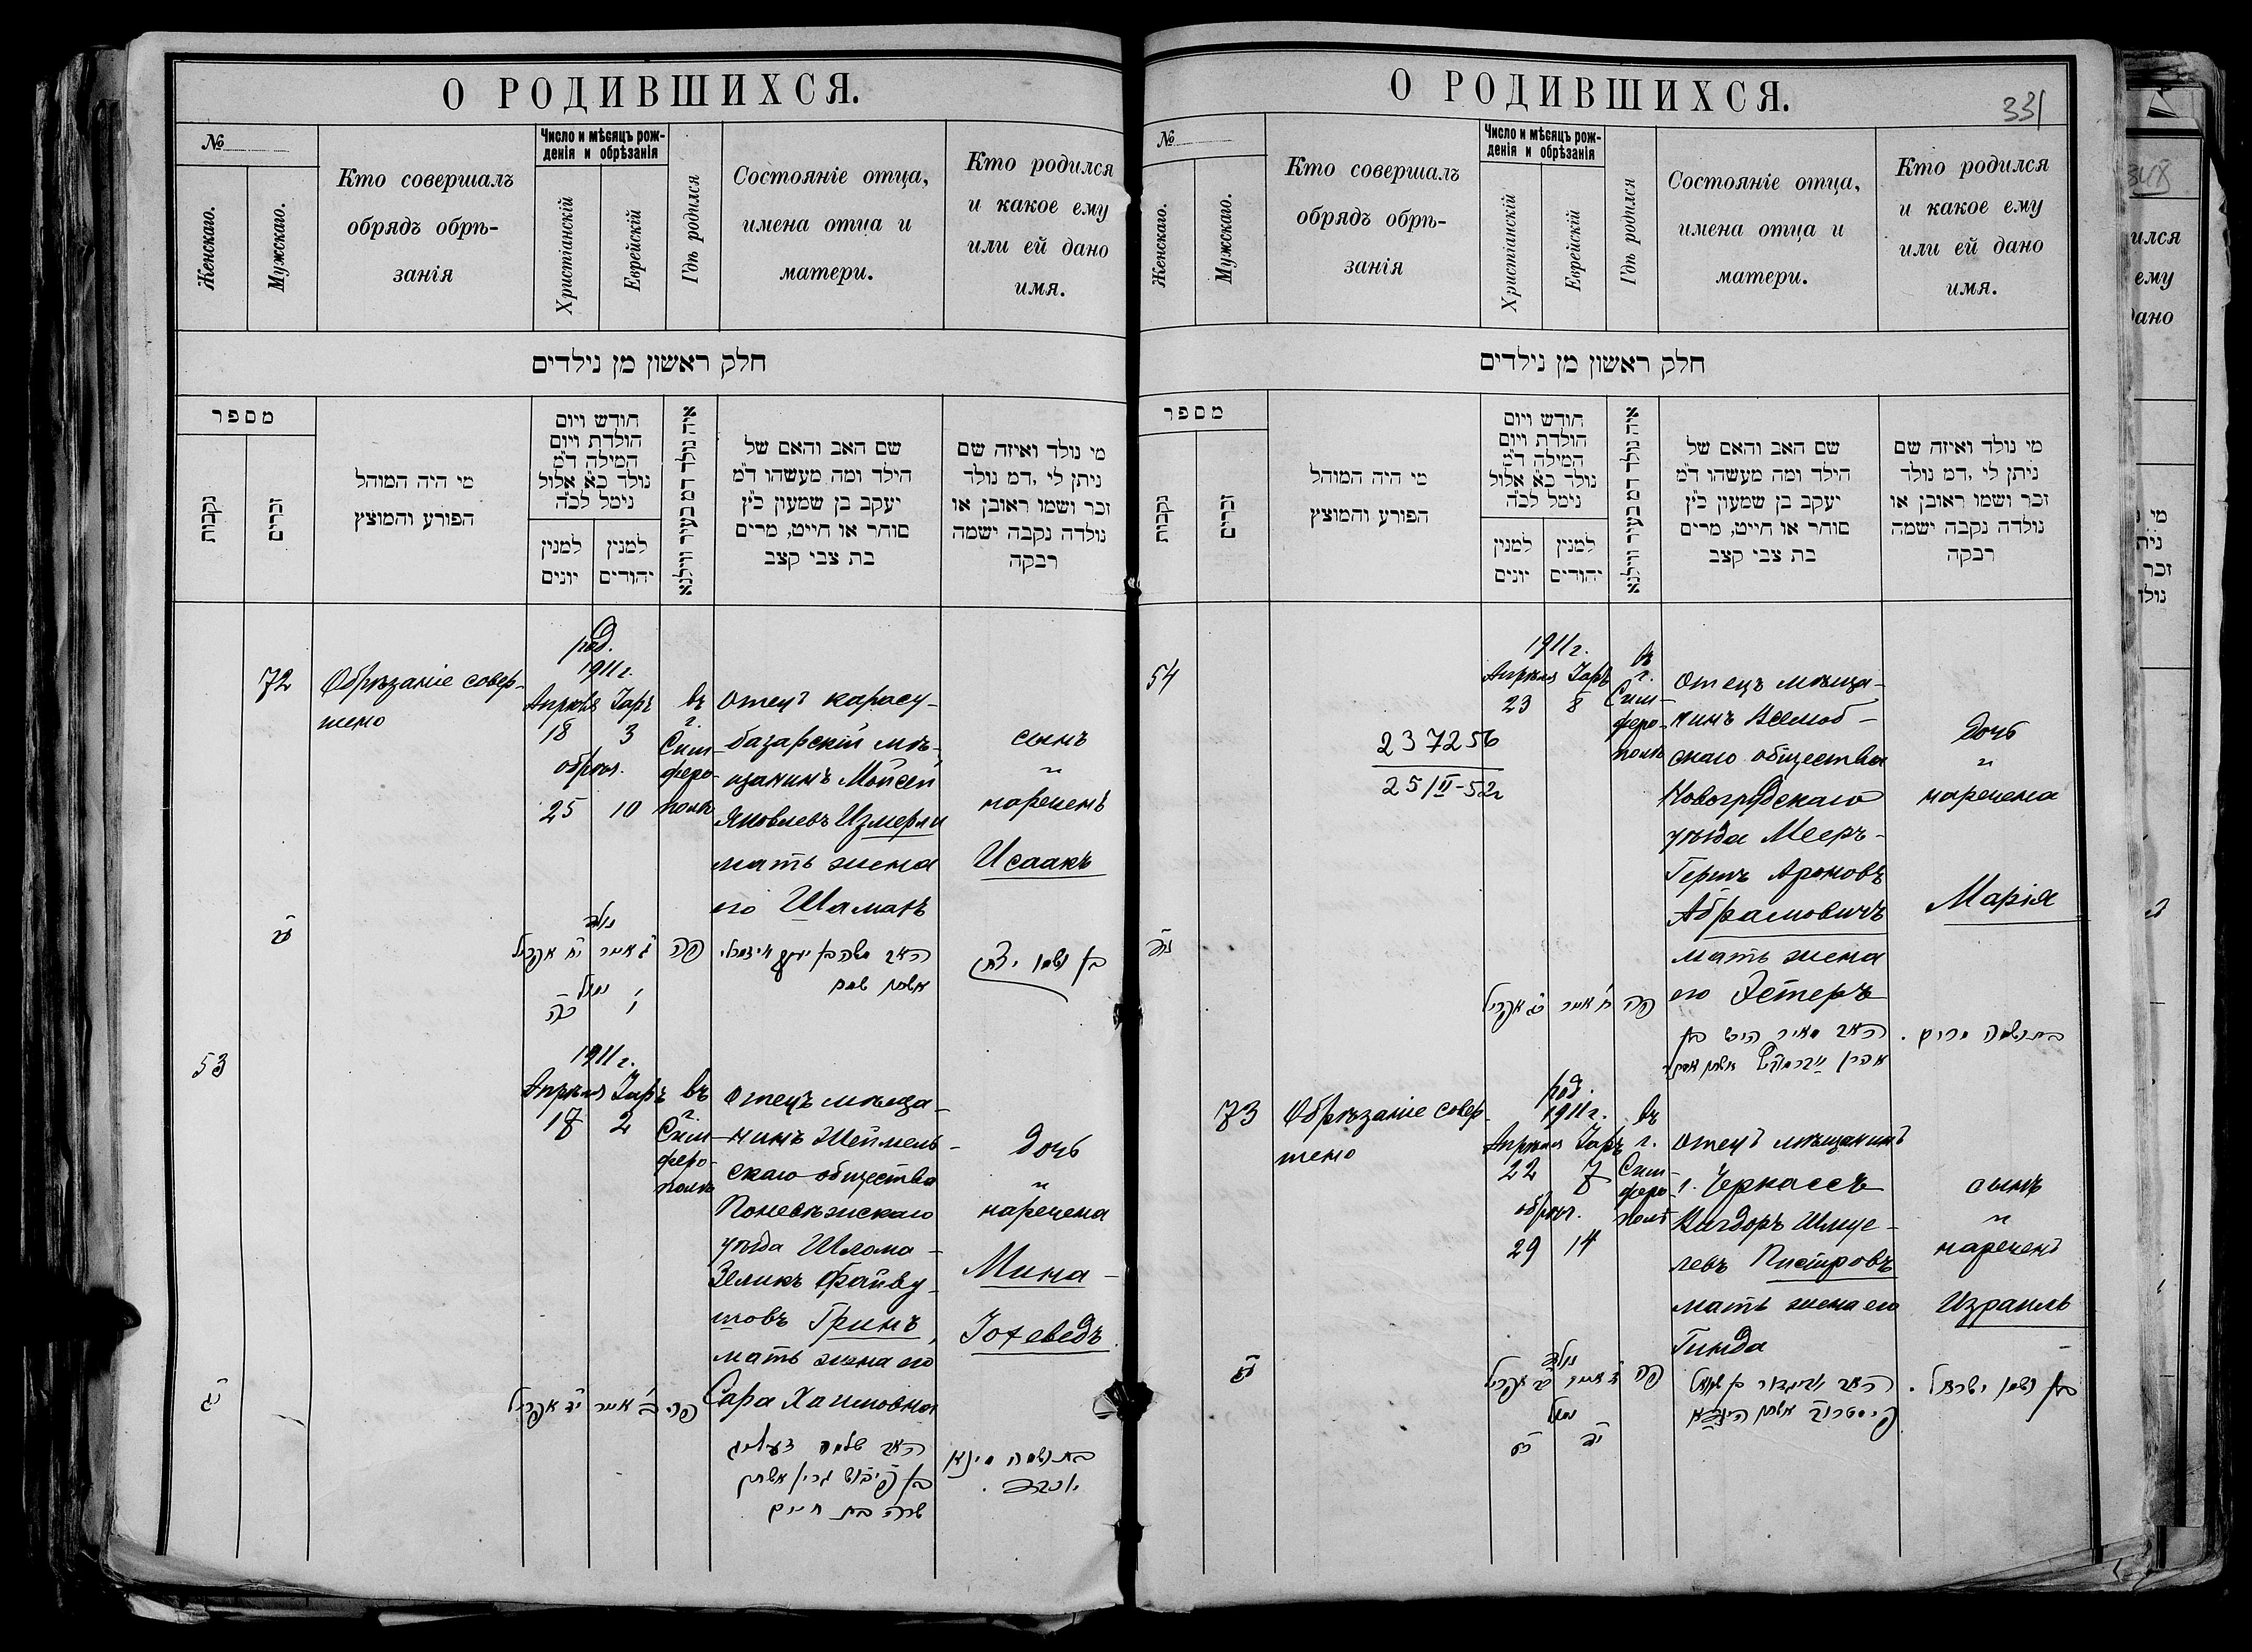 О РОДИВШИХСЯ.
№
Женскаго.
Мужскаго.
Кто совершалъ
обрядъ обрѣ-
занія
Число и мѣсяцъ рож-
денія и обрѣзанія
Христіанскій
Еврейскій
Гдѣ родился
Состояніе отца,
имена отца и
матери.
Кто родился
и какое ему
или ей дано
имя.
חלק ראשון מן נילדים
מספר
נקבות
זכרים
מי היה המוהל
הפורע והמוצץ
חודש ויום
הולדת ויום
המילה ד״מ
נולד כ״א אלול
נימל לכ״ה
למנין
יונים
למנין
יהודים
איה נולד דמ בעיר ווילנא
שם האב והאם של
הילד ומה מעשהו ד״מ
יעקב בן שמעון כ״ץ
סוחר או חייט, מרים
בת צבי קצב
מי נולד ואיזה שם
ניתן לי ,דמ נולד
זכר ושמו ראובן או
נולדה נקבה ישמה
רבקה
72
Обрѣзаніе совер-
шено
род.
1911 г.
Апрѣля Іаръ
18 3
обрѣз.
25 10
въ
г.
Сим-
феро-
полѣ
отецъ карасу-
базарскій мѣ-
щанинъ Мойсей
Яковлевъ Измерли
мать жена
его Шамакъ
сынъ
"
нареченъ
Исаакъ
נולד
ג׳ אייר י״ח אפריל
נמול
י׳ כ״ה
פה
האב משה בן יעקב איזמרלי
אשתו
בן ושמו יצחק
53
1911 г.
Апрѣля Іаръ
17 2
въ
г.
Сим-
феро-
полѣ
отецъ мѣща-
нинъ Шеймель-
скаго общества
Поневѣжскаго
уѣзда Шлома-
Зеликъ Файву-
шовъ Гринъ,
мать жена его
Сара Хаимовна
дочь
"
наречена
Мина-
Іохеведъ
נ״ג
פה ב׳ אייר י״ז אפריל
האב שלמה זעליג
בן פייבוש גרין אשתו
שרה בת חיים
בת ושמה מינא
יוכבד .
О РОДИВШИХСЯ.
331
№
Женскаго.
Мужскаго.
Кто совершалъ
обрядъ обрѣ-
занія
Число и мѣсяцъ рож-
денія и обрѣзанія
Христіанскій
Еврейскій
Гдѣ родился
Состояніе отца,
имена отца и
матери.
Кто родился
и какое ему
или ей дано
имя.
חלק ראשון מן נילדים
מספר
נקבות
זכרים
מי היה המוהל
הפורע והמוצץ
חודש ויום
הולדת ויום
המילה ד״מ
נולד כ״א אלול
נימל לכ״ה
למנין
יונים
למנין
יהודים
איה נולד דמ בעיר ווילנא
שם האב והאם של
הילד ומה מעשהו ד״מ
יעקב בן שמעון כ״ץ
סוחר או חייט, מרים
בת צבי קצב
מי נולד ואיזה שם
ניתן לי ,דמ נולד
זכר ושמו ראובן או
נולדה נקבה ישמה
רבקה
54
237256
25/II-52г
1911 г.
Апрѣля Іаръ
23 8
въ
г.
Сим-
феро-
полѣ
отецъ мѣща-
нинъ Вселюб-
скаго общества
Новогрудскаго
уѣзда Мееръ-
Гершъ Ароновъ
Абрамовичъ
мать жена
его Эстеръ
дочь
"
наречена
Марія
נ״ד
פה ח׳ אייר כ״ג אפריל
האב מאיר הירש בן
אהרן אברמוביץ אשתו אסתר
בת ושמה מרים .
73
Обрѣзаніе совер-
шено
род.
1911 г.
Апрѣля Іаръ
22 7
обрѣз.
29 14
въ
г.
Сим-
феро-
полѣ
отецъ мѣщанинъ
г. Черкассъ
Вигдоръ Шмуе-
левъ Пистровъ
мать жена его
Гинда
сынъ
"
нареченъ
Израиль
נולד
פה ז׳ אייר כ״ב אפריל
נמול
י״ד כ״ט
האב אביגדור בן שמואל
פיסטרוב אשתו הינדא
בן ושמו ישראל .
348